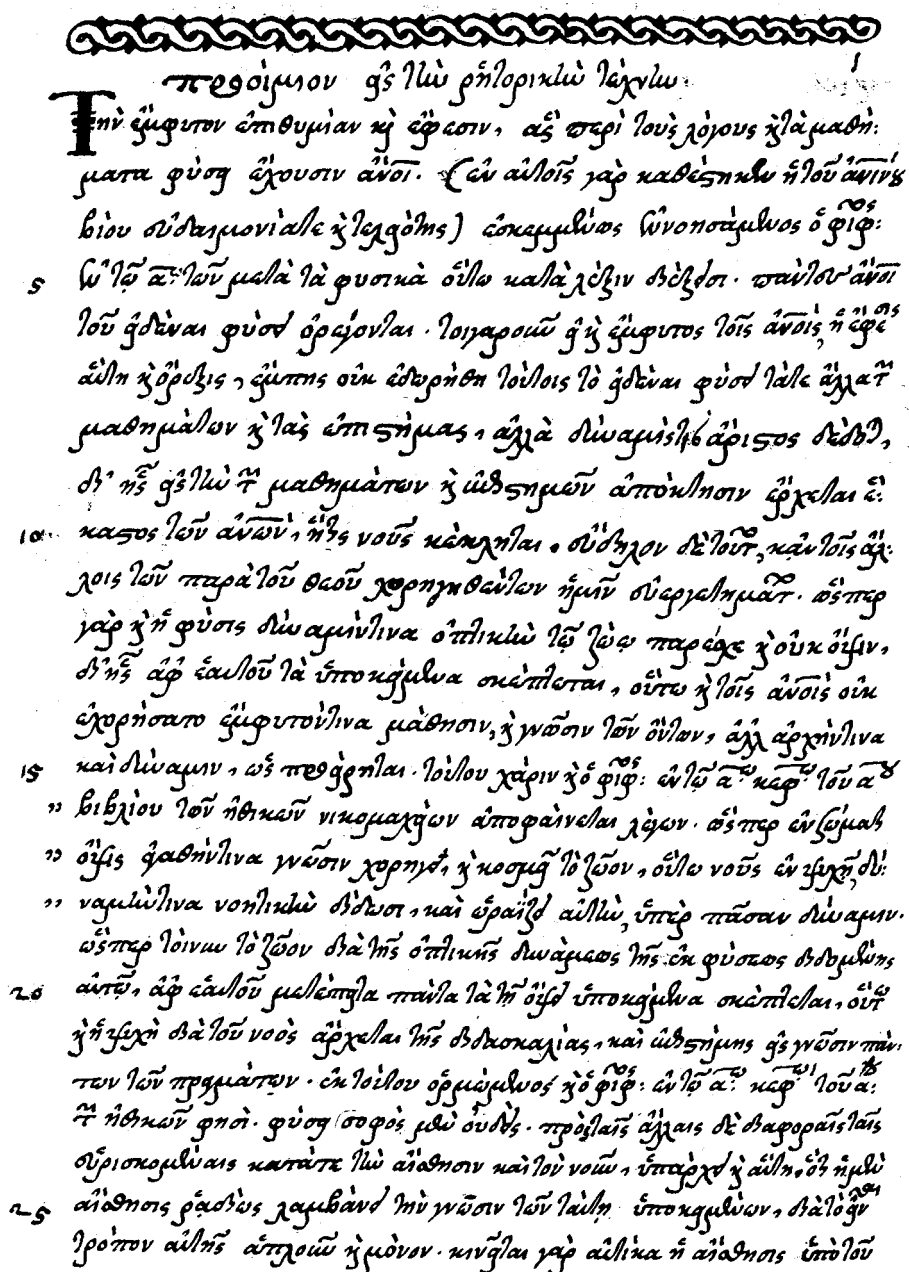 προοίμιον εἰς τὴν ῥητορικὴν τέχνην
1
Τὴν ἔμφυτον ἐπιθυμίαν κὶ ἔφεσιν, ἃς περὶ τοὺς λόγους κὶ τὰ μαθή:
ματα φύσει ἔχουσιν ἄνοι. (ἐν αὐτοῖς γὰρ καθέστηκεν ἡ τοῦ ἀνίνου
βίου εὐδαιμονία τε κὶ τελειότης) ἐσκεμμένως ἐννοησάμενος ὁ φιφος:
5 ἐν τῷ αῳ τῶν μετὰ τὰ φυσικὰ οὕτω κατὰ λέξιν διέξεισι. πάντες ἄνοι
τοῦ εἰδέναι φύσει ὀρέγονται. τοιγαροῦν εἰ κὶ ἔμφυτος τοῖς ἀνοις ἡ ἔφεσις
αὕτη κὶ ὄρεξις, ἔμπης οὐκ ἐδωρήθη τούτοις τὸ εἰδέναι φύσει τά τε ἄλλα τῶν
μαθημάτων κὶ τὰς ἐπιστήμας, ἀλλὰ δύναμίς τις ἄριστος δέδοται,
δι' ἧς εἰς τὴν τῶν μαθημάτων κὶ ἐπιστημῶν ἀπόκτησιν ἔρχεται ἕ:
10 καστος τῶν ἀνων, ἥτις νοῦς κέκληται. εὔδηλον δὲ τοῦτο, κἀν τοῖς ἄλ:
λοις τῶν παρὰ τοῦ θεοῦ χορηγηθέντων ἡμῖν εὐεργετημάτων. ὥσπερ
γὰρ κὶ ἡ φύσις δύναμίν τινα ὀπτικὴν τῷ ζώῳ παρέσχε κὶ οὐκ ὄψιν,
δι' ἧς ἀφ' ἑαυτοῦ τὰ ὑποκείμενα σκέπτεται, οὕτω κὶ τοῖς ἀνοις οὐκ
ἐχορήσατο ἔμφυτόν τινα μάθησιν, κὶ γνῶσιν τῶν ὄντων, ἀλλ' ἀρχήν τινα
15 καὶ δύναμιν, ὡς προείρηται. τούτου χάριν κὶ ὁ φιφος: ἐν τῷ αῳ κεφῳ τοῦ αου
" βιβλίου τῶν ἠθικῶν νικομαχείων ἀποφαίνεται λέγων. ὥσπερ ἐν σώματι
" ὄψις ἀγαθήν τινα γνῶσιν χορηγεῖ, κὶ κοσμεῖ τὸ ζῶον, οὕτω νοῦς ἐν ψυχῇ δύ:
" ναμίν τινα νοητικὴν δίδωσι, καὶ ὡραΐζει αὐτὴν, ὑπὲρ πᾶσαν δύναμιν.
ὥσπερ τοίνυν τὸ ζῶον διὰ τῆς ὀπτικῆς δυνάμεως τῆς ἐκ φύσεως διδομένης
20 αὐτῷ, ἀφ' ἑαυτοῦ μετέπειτα πάντα τὰ τῇ ὄψει ὑποκείμενα σκέπτεται, οὕτω
κὶ ἡ ψυχὴ διὰ τοῦ νοὸς ἄρχεται τῆς διδασκαλίας, καὶ ἐπιστήμης εἰς γνῶσιν πάν:
των τῶν πραγμάτων. ἐκ τούτου ὁρμώμενος κὶ ὁ φιφος: ἐν τῷ αῳ κεφῳ τοῦ αου:
τῶν ἠθικῶν φησι. φύσει σοφὸς μὲν οὐδείς. πρὸς ταῖς ἄλλαις δὲ διαφοραῖς ταῖς
εὑρισκομέναις κατά τε τὴν αἴσθησιν καὶ τὸν νοῦν, ὑπάρχει κὶ αὕτη, ὅτι ἡ μὲν
25 αἴσθησις ῥαδίως λαμβάνει τὴν γνῶσιν τῶν ταύτῃ ὑποκειμένων, διὰ τὸ εἶναι
τρόπον αὐτῆς ἁπλοῦν κὶ μόνον. κινεῖται γὰρ αὐτίκα ἡ αἴσθησις ὑπὸ τοῦ